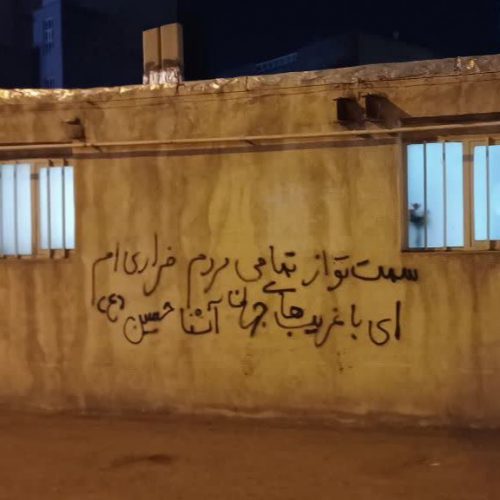 سمت تو از تمامی مردم فراری ام
ای با غریب های جهان آشنا حسین (ع)